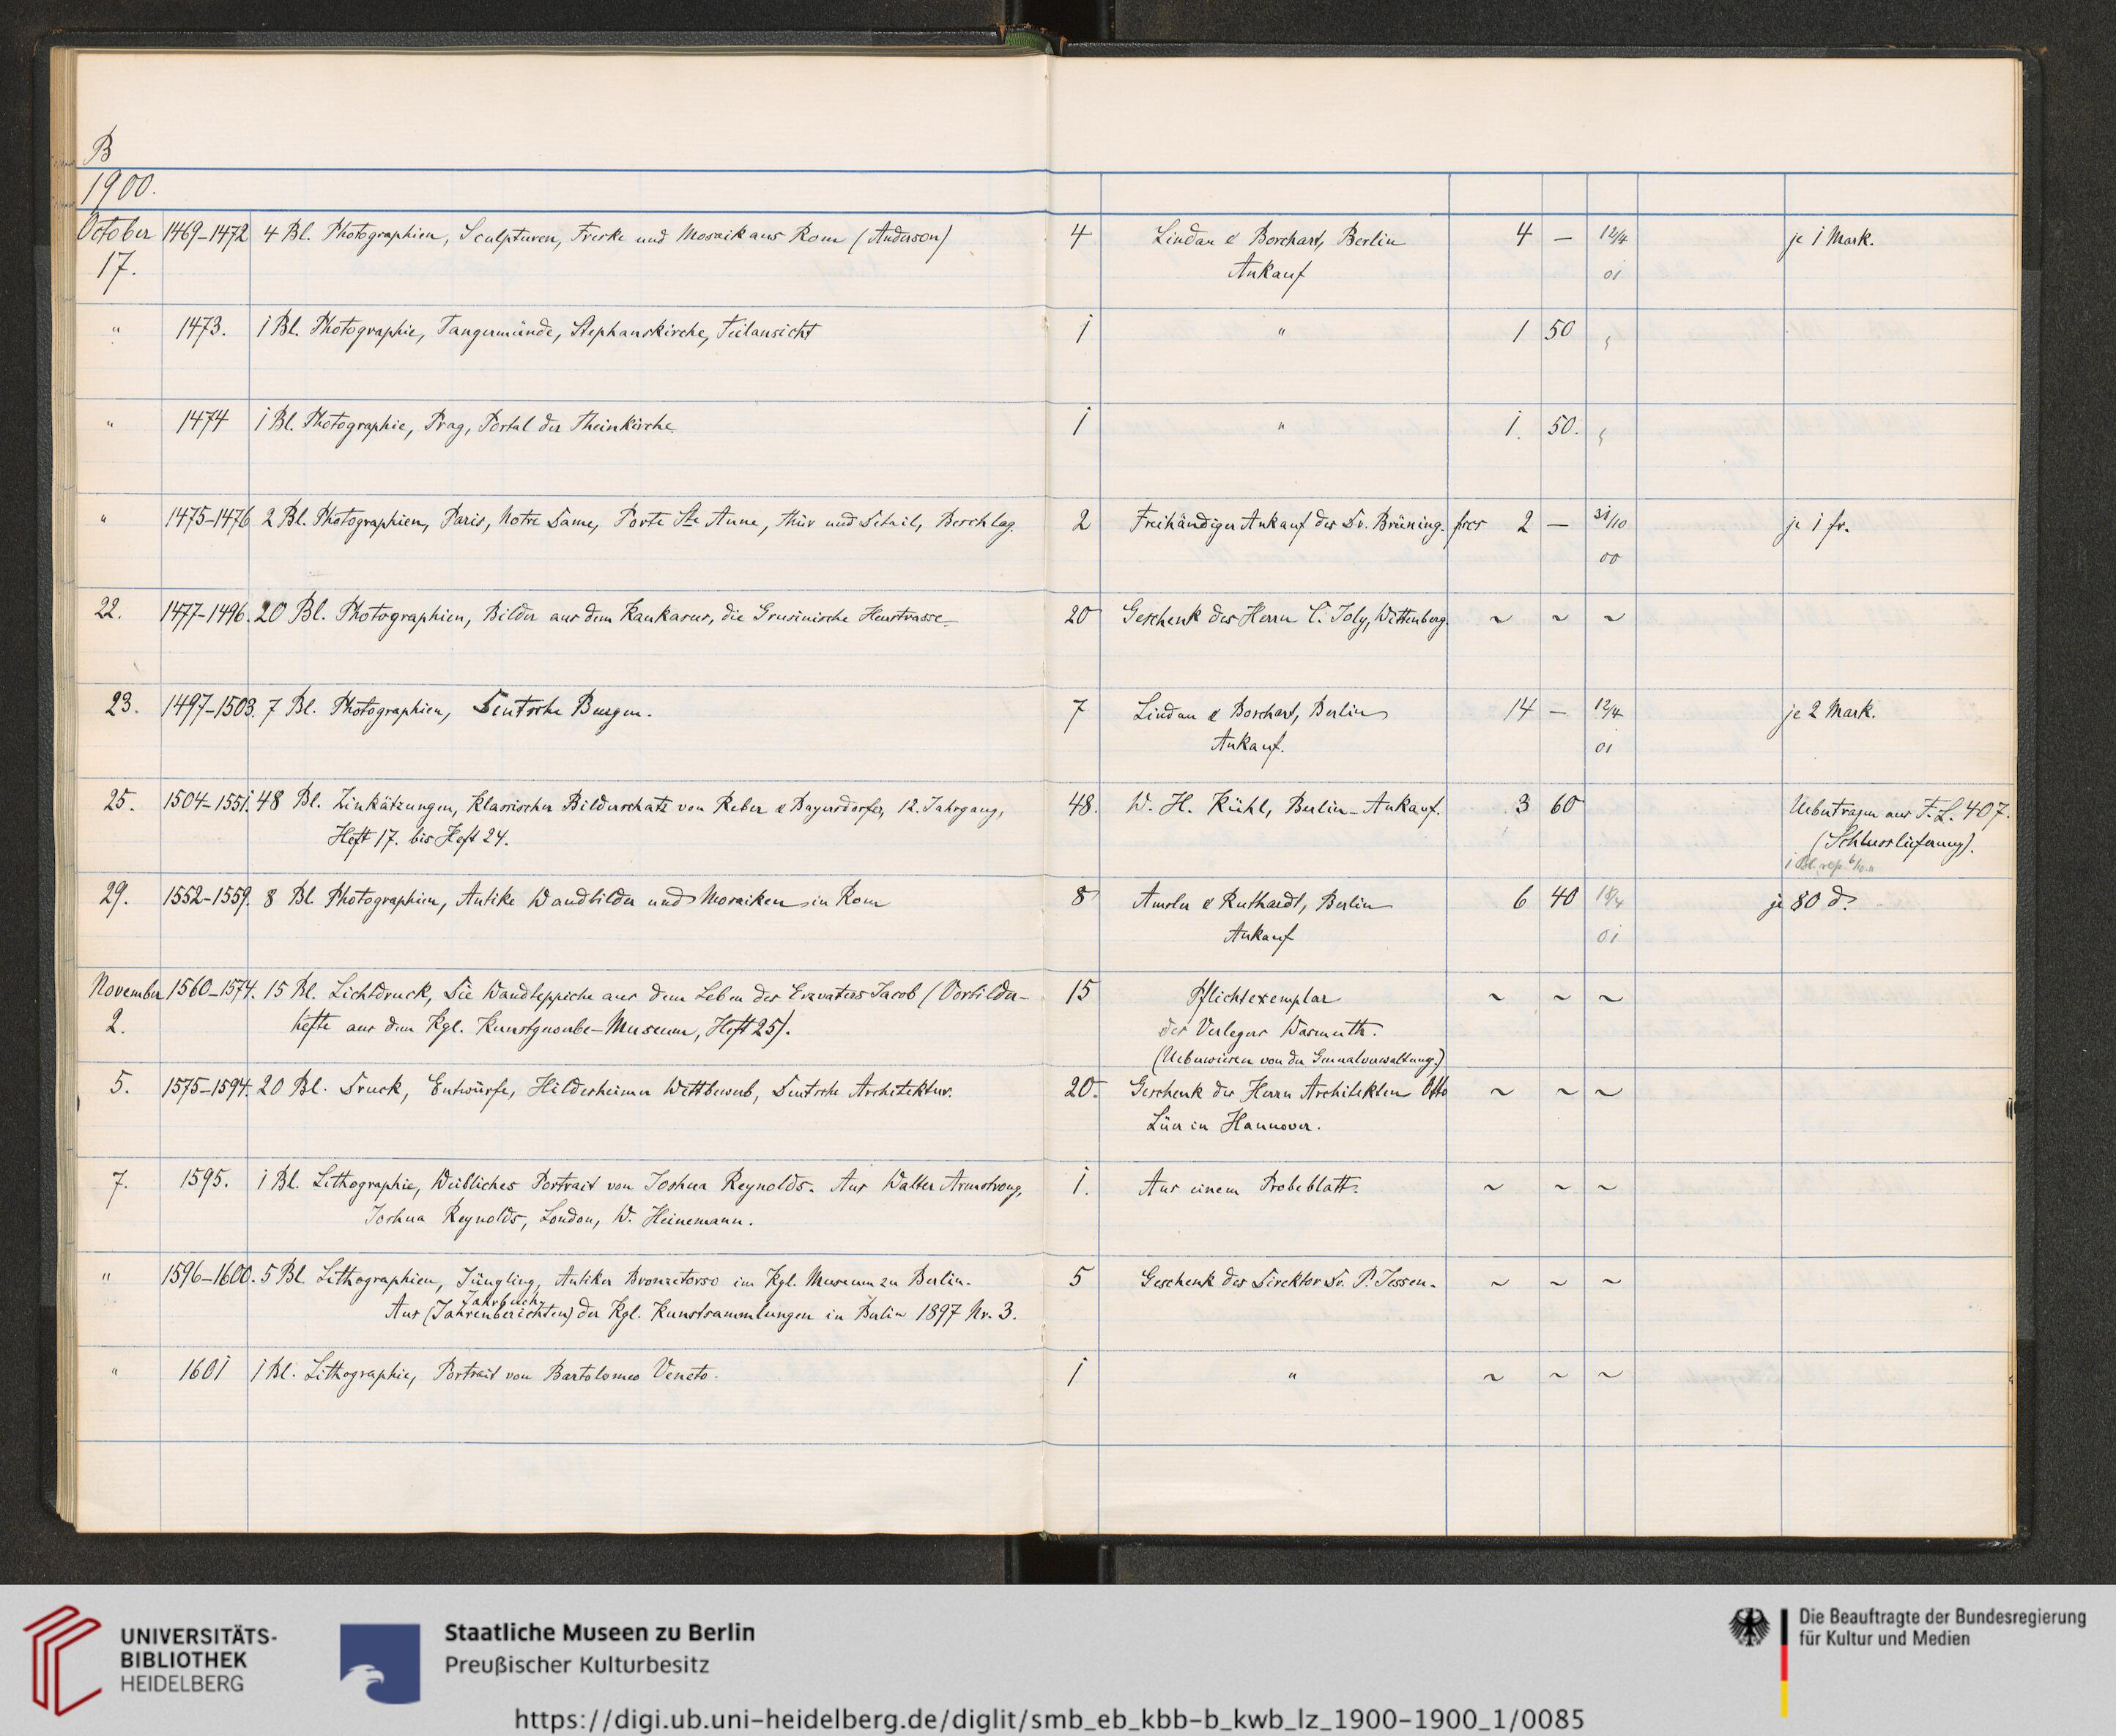 B
1900.
October 1469-1472 4 Bl. Photographien, Sculpturen, Freske und Mosaik aus Rom (Anderson) 4 Lindau & Borchart, Berlin 4 — 12/4 je 1 Mark.
17. Ankauf 01
" 1473. 1 Bl. Photographie, Tangermünde, Stephanskirche, Teilansicht 1 " 1 50 "
" 1474 1 Bl. Photographie, Prag, Portal der Theinkirche 1 " 1. 50. "
" 1475-1476 2 Bl. Photographien, Paris, Notre Dame, Porte Ste Anne, Thür und Detail, Beschlag. 2 Freihändiger Ankauf des Dr. Brüning. frcs 2 — 31/10 je 1 fr.
00
22. 1477-1496. 20 Bl. Photographien, Bilder aus dem Kaukasus, die Grusinische Heerstrasse 20 Geschenk des Herrn C. Joly, Wittenberg. ~ ~ ~
23. 1497-1503. 7 Bl. Photographien, Deutsche Burgen. 7 Lindau & Borchart, Berlin 14 — 12/4 je 2 Mark.
Ankauf. 01
25. 1504-1551. 48 Bl. Zinkätzungen, Klassischer Bilderschatz von Reber & Bayersdorfer, 12. Jahrgang, 48. W. H. Kühl, Berlin-Ankauf. 3 60 Uebertragen aus F. L. 407.
Heft 17. bis Heft 24. (Schlusslieferung).
1 Bl.
29. 1552-1559. 8 Bl. Photographien, Antike Wandbilder und Mosaiken in Rom 8 Amsler & Ruthardt, Berlin 6 40 18/4 je 80 d.
Ankauf 01
November 1560-1574. 15 Bl. Lichtdruck, Die Wandteppiche aus dem Leben des Erzvaters Jacob (Vorbilder- 15 Pflichtexemplar ~ ~ ~
2. hefte aus dem Kgl. Kunstgewerbe-Museum, Heft 25). des Verlegers Wasmuth.
(Ueberwiesen von der Generalverwaltung.)
5. 1575-1594. 20 Bl. Druck, Entwürfe, Hildesheimer Wettbewerb, Deutsche Architektur. 20. Geschenk des Herrn Architekten Otto ~ ~ ~
Lüer in Hannover.
7. 1595. 1 Bl. Lithographie, Weibliches Portrait von Joshua Reynolds. Aus Walter Armstrong, 1. Aus einem Probeblatt. ~ ~ ~
Joshua Reynolds, London, W. Heinemann.
" 1596-1600. 5 Bl. Lithographien, Jüngling, Antiker Bronzetorso im Kgl. Museum zu Berlin. 5 Geschenk des Direktor Dr. P. Jessen. ~ ~ ~
Jahrbuch
Aus (Jahrenberichten) der Kgl. Kunstsammlungen in Berlin 1897 Nr. 3.
" 1601 1 Bl. Lithographie, Portrait von Bartolomeo Veneto. 1 " ~ ~ ~
UNIVERSITÄTS-
BIBLIOTHEK
HEIDELBERG
Staatliche Museen zu Berlin
Preußischer Kulturbesitz
Die Beauftragte der Bundesregierung
für Kultur und Medien
https://digi.ub.uni-heidelberg.de/diglit/smb_eb_kbb-b_kwb_lz_1900-1900_1/0085